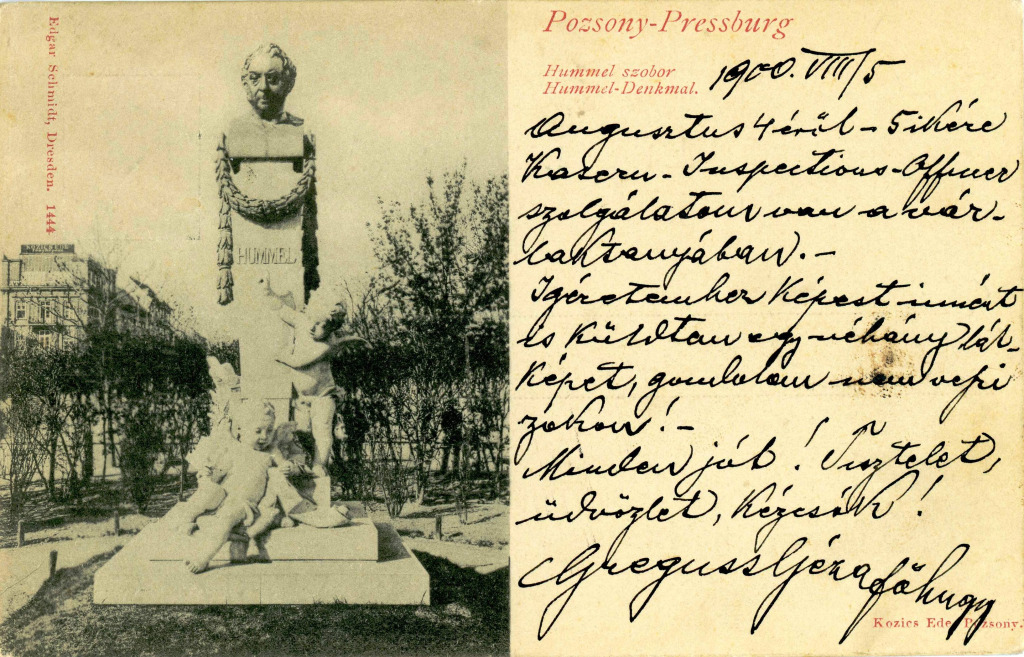 Edgar Schmidt, Dresden. 1444
HUMMEL
Pozsony-Pressburg
Hummel szobor
Hummel-Denkmal.
1900. VIII/5
Augusztus 4 éről - 5 ikére
Kasern - Inspections - Officier
szolgálatom van a vár-
laktanyában. -
Igéretemhez képest ismét
is küldtem egy néhány lát-
képet, gondolom nem veszi
zokon! -
Minden jót! Tisztelet,
üdvözlet, kézcsók!
Greguss Géza
főhngy
Kozics Ede, Pozsony.